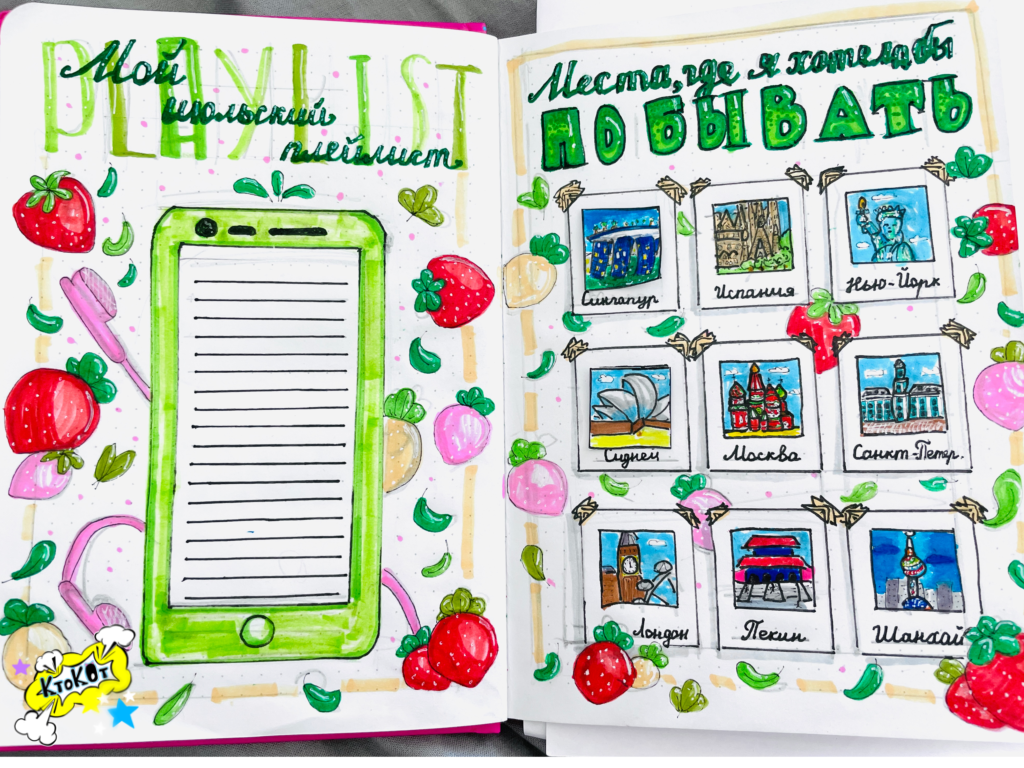 PLAYLIST
Мой
июльский
плейлист
Места, где я хотела бы
ПОБЫВАТЬ
Сингапур
Испания
Нью-Йорк
Сидней
Москва
Санкт-Петер.
Лондон
Пекин
Шанхай
КтоКот